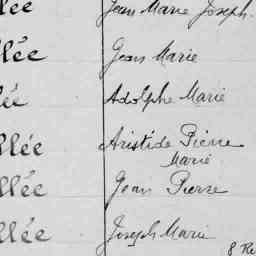 lée Jean Marie Joseph.
llée Jean Marie
lée Adolphe Marie
llée Aristide Pierre
Marie
llée Jean Pierre
llée Joseph Marie
8 Re